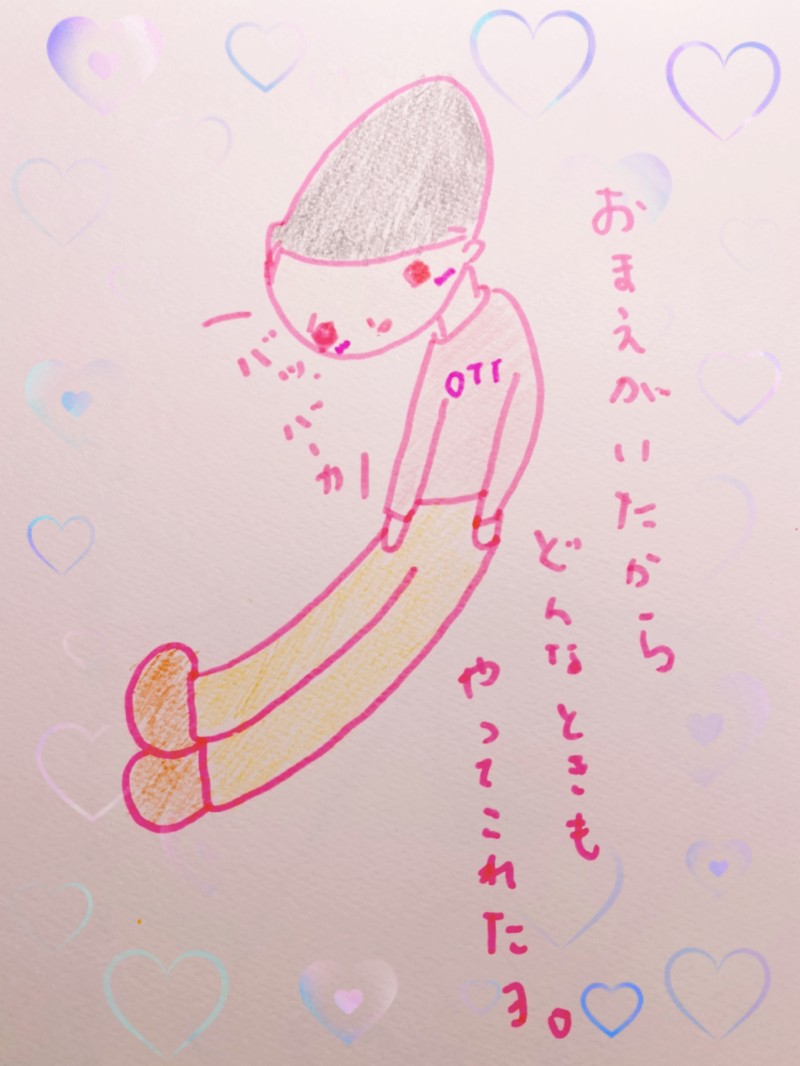 おまえがいたから
どんなときも
やってこれたヨ。
OTT
バッ
バカー